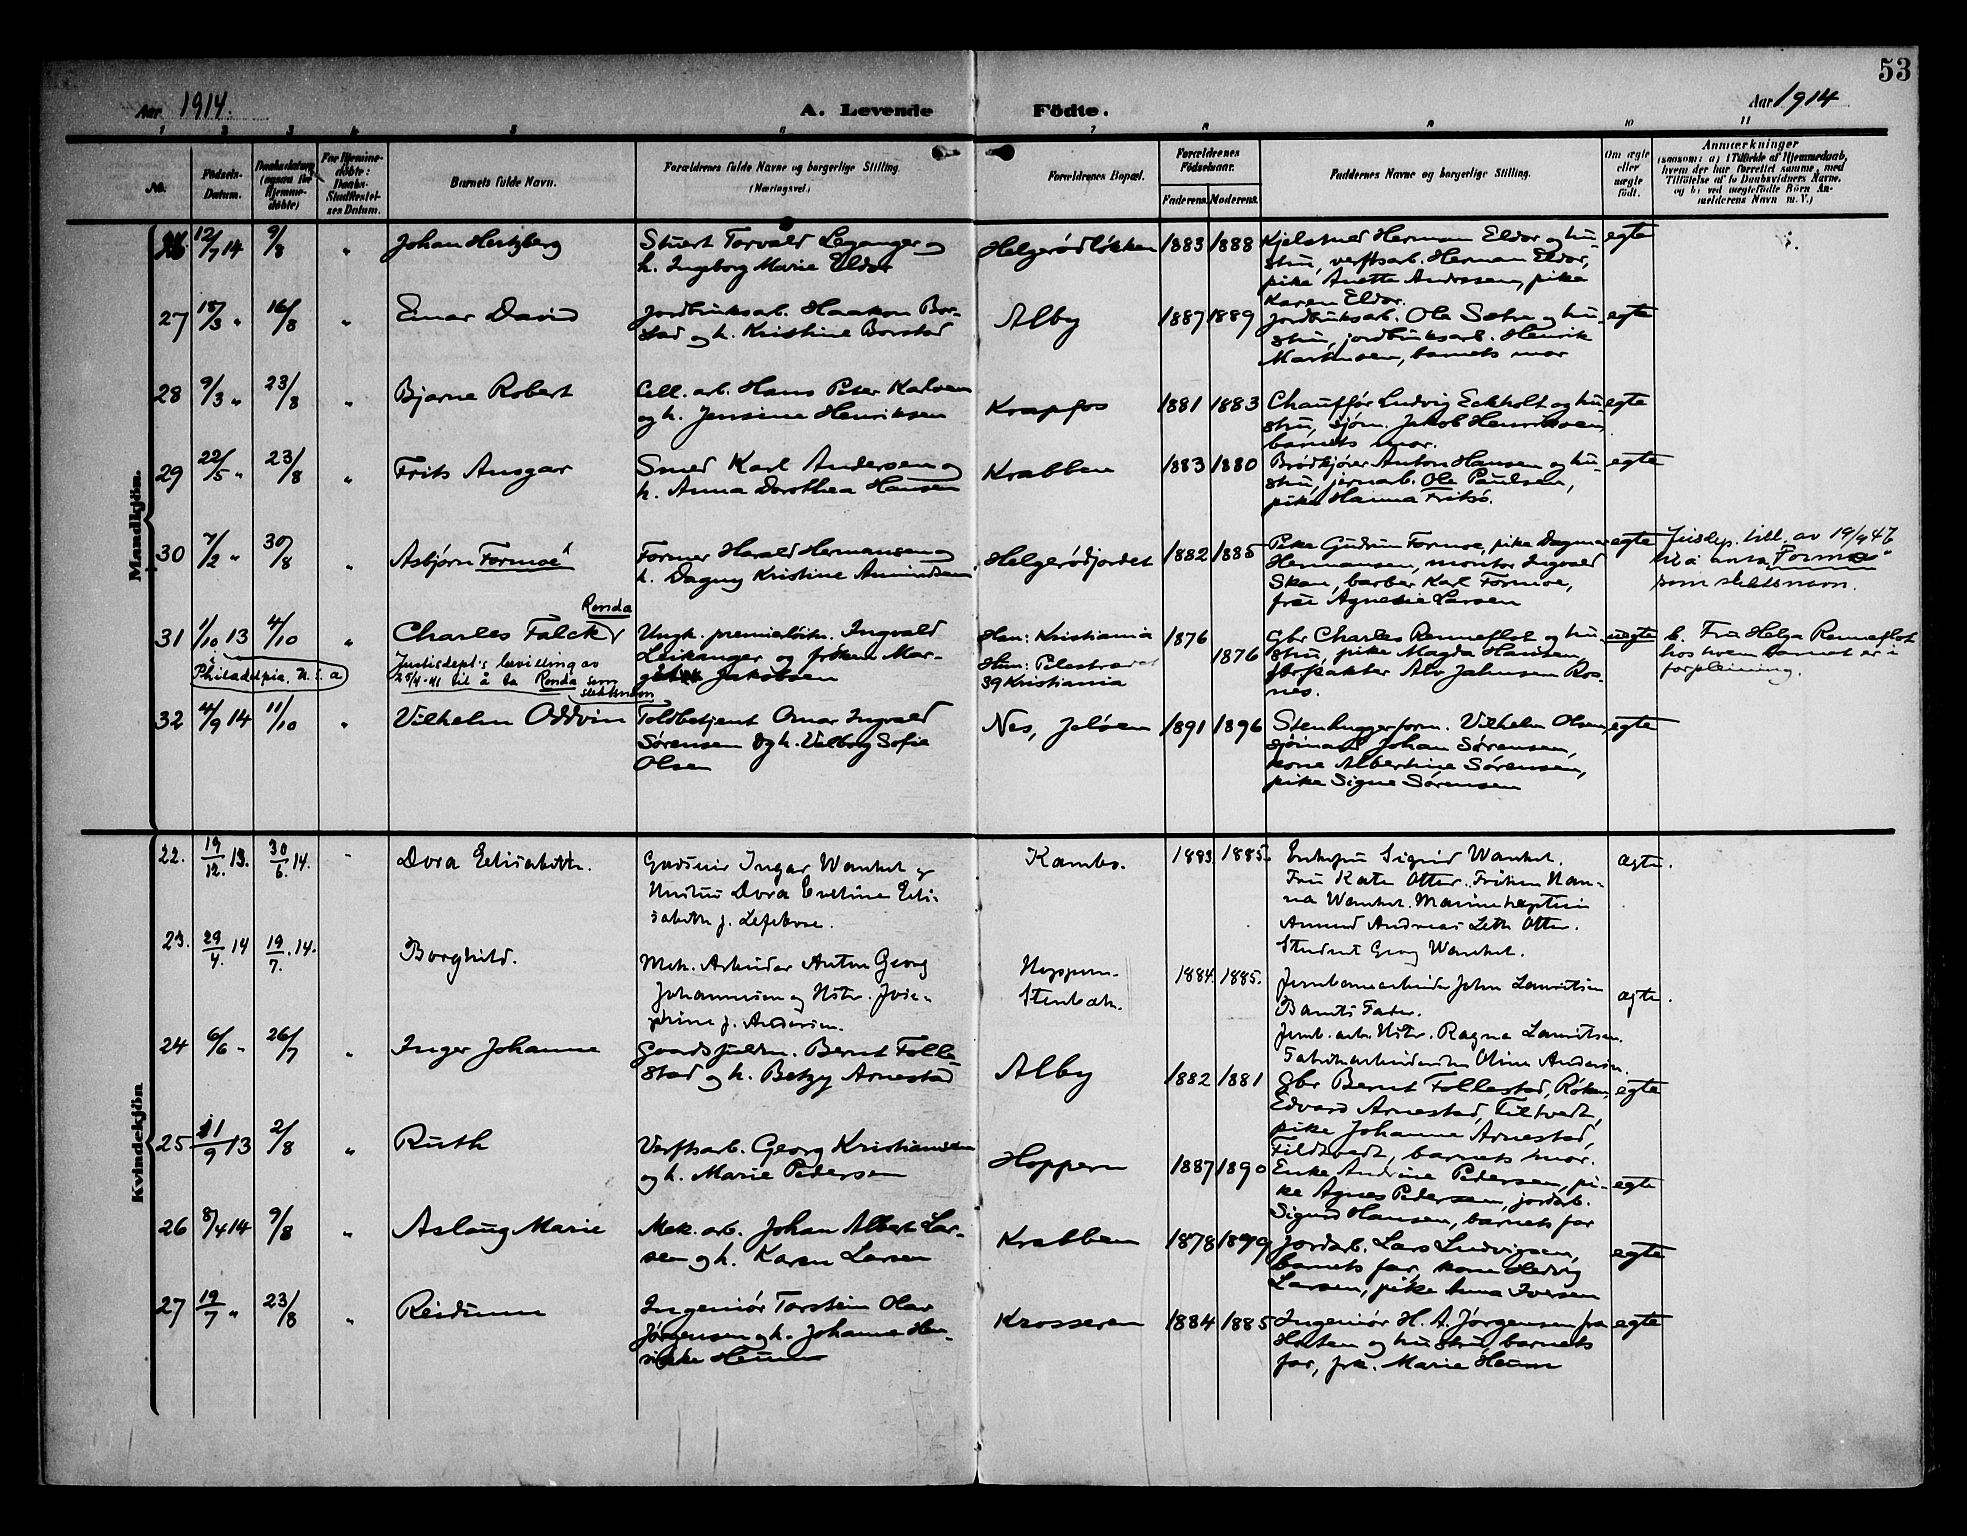 53
Aar 1914.
A. Levende
Födte.
Aar 1914
1 2 3 4 5 6 7 8 9 10 11
No.
Födsels-
Datum.
Daabsdatum
(ogsaa for
Hjemme-
döbte)
For Hjemme-
döbte:
Daabs-
Stadfestel-
ses Datum.
Barnets fulde Navn.
Forældrenes fulde Navne og borgerlige Stilling
(Næringsvei)
Forældrenes Bopæl.
Forældrenes
Födselsaar.
Faderens. Moderens.
Faddernes Navne og borgerlige Stilling.
Om ægte
eller
uægte
födt.
Anmærkninger
(saasom: a) i Tilfælde af Hjemmedaab,
hvem der har forrettet samme, med
Tilföielse af to Daabsvidners Navne,
og b) ved uægtefödte Börn An-
melderens Navn m. V.)
Mandkjön.
26 12/7 14 9/8 " Johan Hertzberg
Stuert Torvald Leganger og
h. Ingeborg Marie Eldor
Helgerødløkken 1883 1888
Kjelsmed Herman Eldor og hu-
stru, verftsarb. Herman Eldor,
pike Anette Andresen, pike
Karen Eldor.
egte
27 18/3 " 16/8 " Einar David
Jordbruksarb. Haakon Bor-
stad og h. Kristine Borstad
Alby 1887 1889
Jordbruksarb. Ole Sætre og hu-
stru, jordbruksarb. Henrik
Martinsen, barnets mor
egte
28 9/3 " 23/8 " Bjarne Robert
Cell. arb. Hans Peter Karlsen
og h. Jensine Henriksen
Krapfos 1881 1883
Chauffør Ludvig Eckholt og hu-
stru, sjøm. Jakob Henriksen,
barnets mor.
egte
29 22/5 " 23/8 " Frits Ansgar
Smed Karl Andersen og
h. Anna Dorothea Hansen
Krabben 1883 1880
Brødkjører Anton Hansen og hu-
stru, jernarb. Ole Paulsen,
pike Hanna Fritsø.
egte
30 7/2 " 30/8 " Asbjørn Formoe
Former Harald Hermansen og
h. Dagny Kristine Amundsen
Helgerødjordet 1882 1885
Pike Gudrun Formoe, pike Dagmar
Hermansen, montør Ingvald
Skau, barber Karl Formoe,
frue Agnesie Larsen
egte
Jusdep. till. av 19/9 47
til å anta "Formoe"
som slektsnavn.
31 1/10 13 4/10 " Charles Falck Ronda
i Philadelpia, U.S.a
Justisdept's bevilling av
25/4-41 til å ta Ronda som
slektsnavn
Ungk. premierløitn. Ingvald
Leikanger og frøken Mar-
grethe Jakobsen
Han: Kristiania
Hun: Pilestrædet
39 Kristiania
1876
1876
Gbr Charles Renneflot og hu-
stru, pike Magda Hansen,
forpakter Alv Jahnsen Ros-
nes.
uegte
b. Fru Helga Renneflot
hos hvem barnet er i
forpleining.
32 4/9 14 11/10 " Vilhelm Oddvin
Toldbetjent Omar Ingvald
Sørensen og h. Valborg Sofie
Olsen
Nes, Jeløen 1891 1896
Stenhuggerform. Vilhelm Olsen,
sjömand Johan Sørensen,
kone Albertine Sørensen,
pike Signe Sørensen
egte
Kvindekjön
22. 19/12. 13. 30/6. 14. " Dora Elisabeth.
Gardseier Ingar Wankel og
Hustru Dora Eveline Eli-
sabeth f. Lefebvre.
Kambo. 1883. 1885.
Enkefru Sigrid Wankel.
Fru Kate Otter. Frøken Nan-
na Wankel. Marinekaptein
Amund Andreas Leth Otter.
Student Georg Wankel.
ægte.
23. 29/4. 14 19/7. 14. Borghild.
Mek. Arbeider Anton Georg
Johannesen og Hstr. Jose-
phine f. Andersen.
Hoppern-
Stenbæk.
1884. 1885.
Jernbanearbeider John Lauritsen
Barnets Fader.
Jernb. arb. Hstr. Ragna Lauritsen.
Fabrikarbeiderske Oline Andersen.
ægte.
24 6/6 " 26/7 " Inger Johanne
Gaardsfuldm. Bernt Folle-
stad og h. Betzy Arnestad
Alby 1882 1881
Gbr Bernt Follestad, Røken,
Edvard Arnestad, Filtvedt,
pike Johanne Arnestad,
Fildtvedt, barnets mor.
egte
25 11/9 13 2/8 " Ruth
Verftsarb. Georg Kristiansen
og h. Marie Pedersen
Hoppern 1887 1890
Enke Andrine Pedersen, pi-
ke Agnes Pedersen, jordarb.
Sigurd Hansen, barnets far
egte
26 8/4 14 9/8 " Aslaug Marie
Mek. arb. Johan Albert Lar-
sen og h. Karen Larsen
Krabben 1878 1879
Jordarb. Lars Ludvigsen,
barnets far, kone Hedvig
Larsen, pike Anna Iversen
egte
27 19/7 " 23/8 " Reidunn
Ingeniör Torstein Olav
Jørgensen og h. Johanne Hen-
rikke Heum
Krosseren 1884 1885
Ingeniör H. A. Jörgensen fra
Horten og hustru, barnets
far, frk. Marie Heum
egte